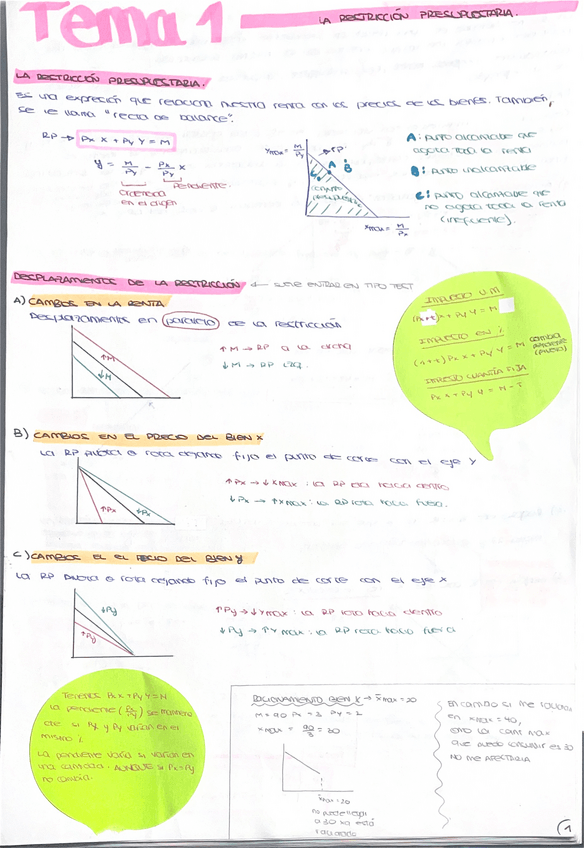 Tema 1
LA RESTRICCIÓN PRESUPUESTARIA.
LA RESTRICCIÓN PRESUPUESTARIA.
Es una expresión que relaciona nuestra renta con los precios de los bienes. También,
se le llama "recta de balance".
RP → Px X + Py Y = M
y = M/Py - Px/Py X
ordenada
en el origen
pendiente.
Ymax = M/Py
RP
A
B
C
conjunto
presupuestario
Xmax = M/Px
A: punto alcanzable que
agota toda la renta
B: punto inalcanzable
C: punto alcanzable que
no agota toda la renta
(ineficiente).
DESPLAZAMIENTOS DE LA RESTRICCIÓN ← SUELE ENTRAR EN TIPO TEST
A) CAMBIOS EN LA RENTA
Desplazamientos en paralelo de la restricción
↑M
↓M
↑ M → RP a la dcha
↓ M → RP izq.
IMPUESTO U.M
(Px+t)x + Py Y = M
IMPUESTO EN %
(1+t) Px X + Py Y = M cambia
pendiente
IMPUESTO CUANTÍA FIJA
Px X + Py Y = M - T
B) CAMBIOS EN EL PRECIO DEL BIEN X
La RP pivota o rota dejando fijo el punto de corte con el eje Y
↑Px
↓Px
↑ Px → ↓ Xmax : la RP rota hacia dentro
↓ Px → ↑ Xmax : la RP rota hacia fuera.
C) CAMBIOS EL EL PRECIO DEL BIEN Y
La RP pivota o rota dejando fijo el punto de corte con el eje X
↓Py
↑Py
↑ Py → ↓ Ymax : la RP rota hacia dentro
↓ Py → ↑ Y max : la RP rota hacia fuera
Tenemos Px X + Py Y = M
La pendiente (Px/Py) se mantiene
cte si Px y Py varían en el
mismo %.
La pendiente varía si varían en
una cantidad. AUNQUE si Px=Py
no cambia.
RACIONAMIENTO BIEN X → X̄max = 20
M = 90 Px = 3 Py = 2
Xmax = 90/3 = 30
X̄max = 20
no puede llegar
a 30 ya está
racionado
En cambio si me racionan
en Xmax = 40,
como la cant max
que puedo consumir es 30
NO ME AFECTARÍA
1